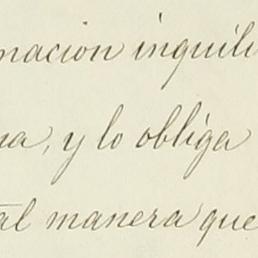 macion inquili
na, y lo obliga
tal manera que